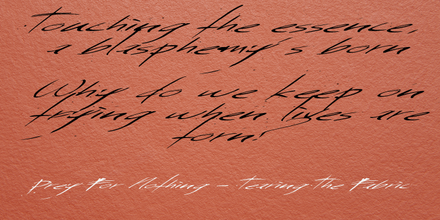 Touching the essence,
a blasphemy's born
Why do we keep on
trying when lives are
torn?
Prey For Nothing - Tearing The Fabric